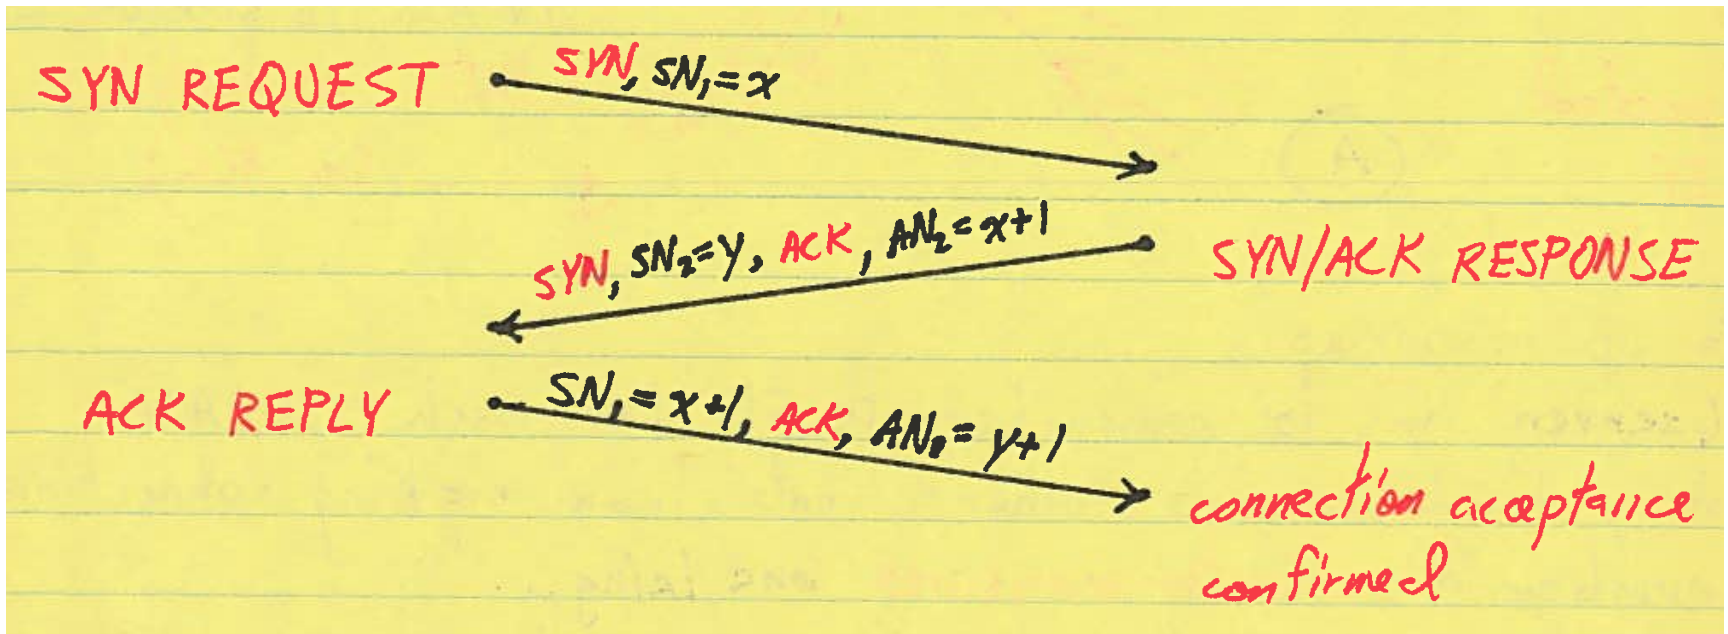 SYN REQUEST
SYN, SN₁=x
SYN, SN₂=y, ACK, AN₂=x+1
SYN/ACK RESPONSE
ACK REPLY
SN₁=x+1, ACK, AN₁=y+1
connection acceptance
confirmed
(A)